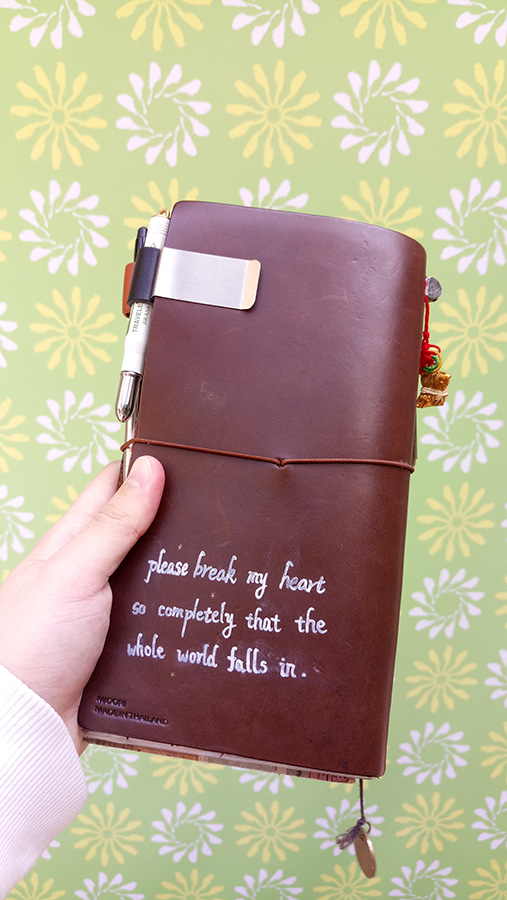 TRAVELE
please break my heart
so completely that the
whole world falls in.
MIDORI
MADE IN THAILAND